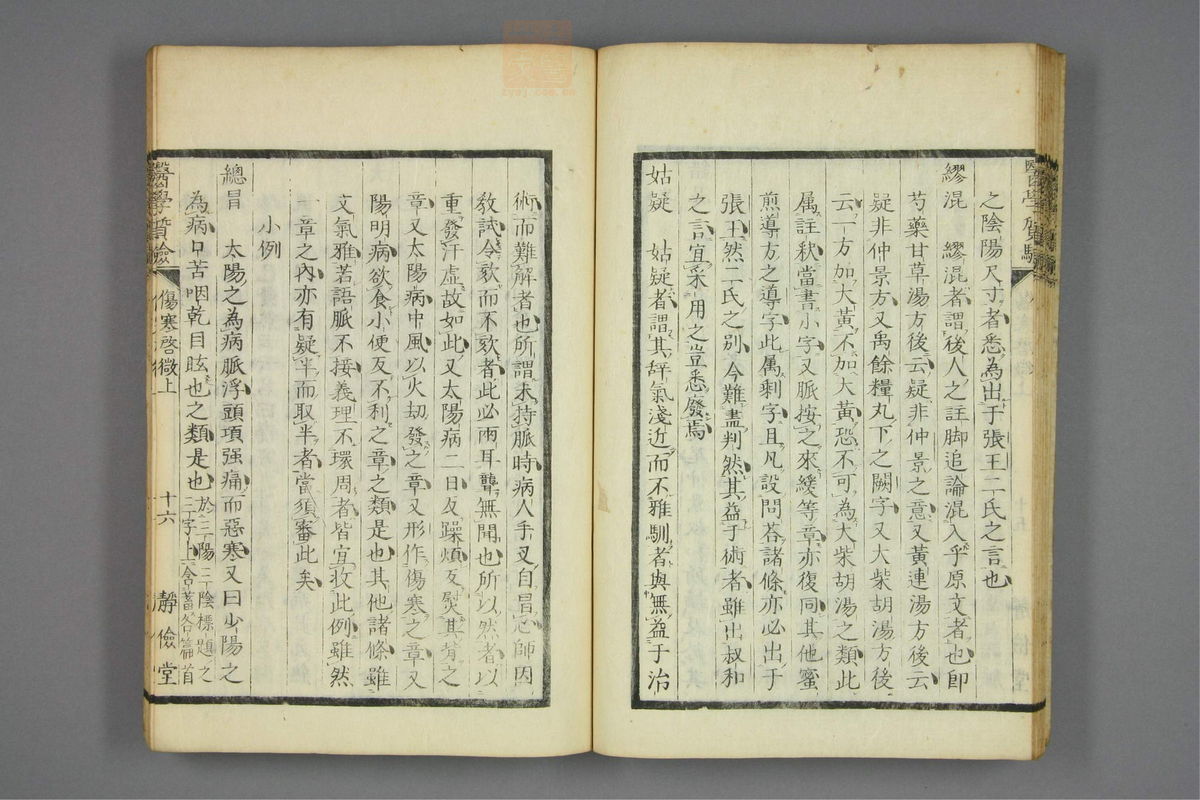 之陰陽尺寸者悉為出于張王二氏之言也
繆混　繆混者謂後人之註脚追論混入乎原文者也即
芍藥甘草湯方後云疑非仲景之意又黃連湯方後云
疑非仲景方又禹餘糧丸下之闕字又大柴胡湯方後
云一方加大黃不加大黃恐不可為大柴胡湯之類此
属註秋當書小字又脈按之來緩等章亦復同其他蜜
煎導方之導字此属剩字且凡設問荅諸條亦必出于
張王然二氏之別今難盡判然其益于術者雖出叔和
之言宜采用之豈悉廢焉
姑疑　姑疑者謂其辞氣淺近而不雅馴者與無益于治
術而難解者也所謂未持脈時病人手叉自冒心師因
教試令欬而不欬者此必兩耳聾無聞也所以然者以
重發汗虛故如此又太陽病二日反躁煩反熨其背之
章又太陽病中風以火劫發之章又形作傷寒之章又
陽明病欲食小便反不利之章之類是也其他諸條雖
文氣雅若語脈不接義理不環周者皆宜攷此例雖然
一章之內亦有疑半而取半者當須審此矣
小例
總冒　太陽之為病脈浮頭項强痛而惡寒又曰少陽之
為病口苦咽乾目眩也之類是也
於三陽三陰標題之
三字上含蓄各篇首
醫學質驗
傷寒啓微上
十六
靜儉堂